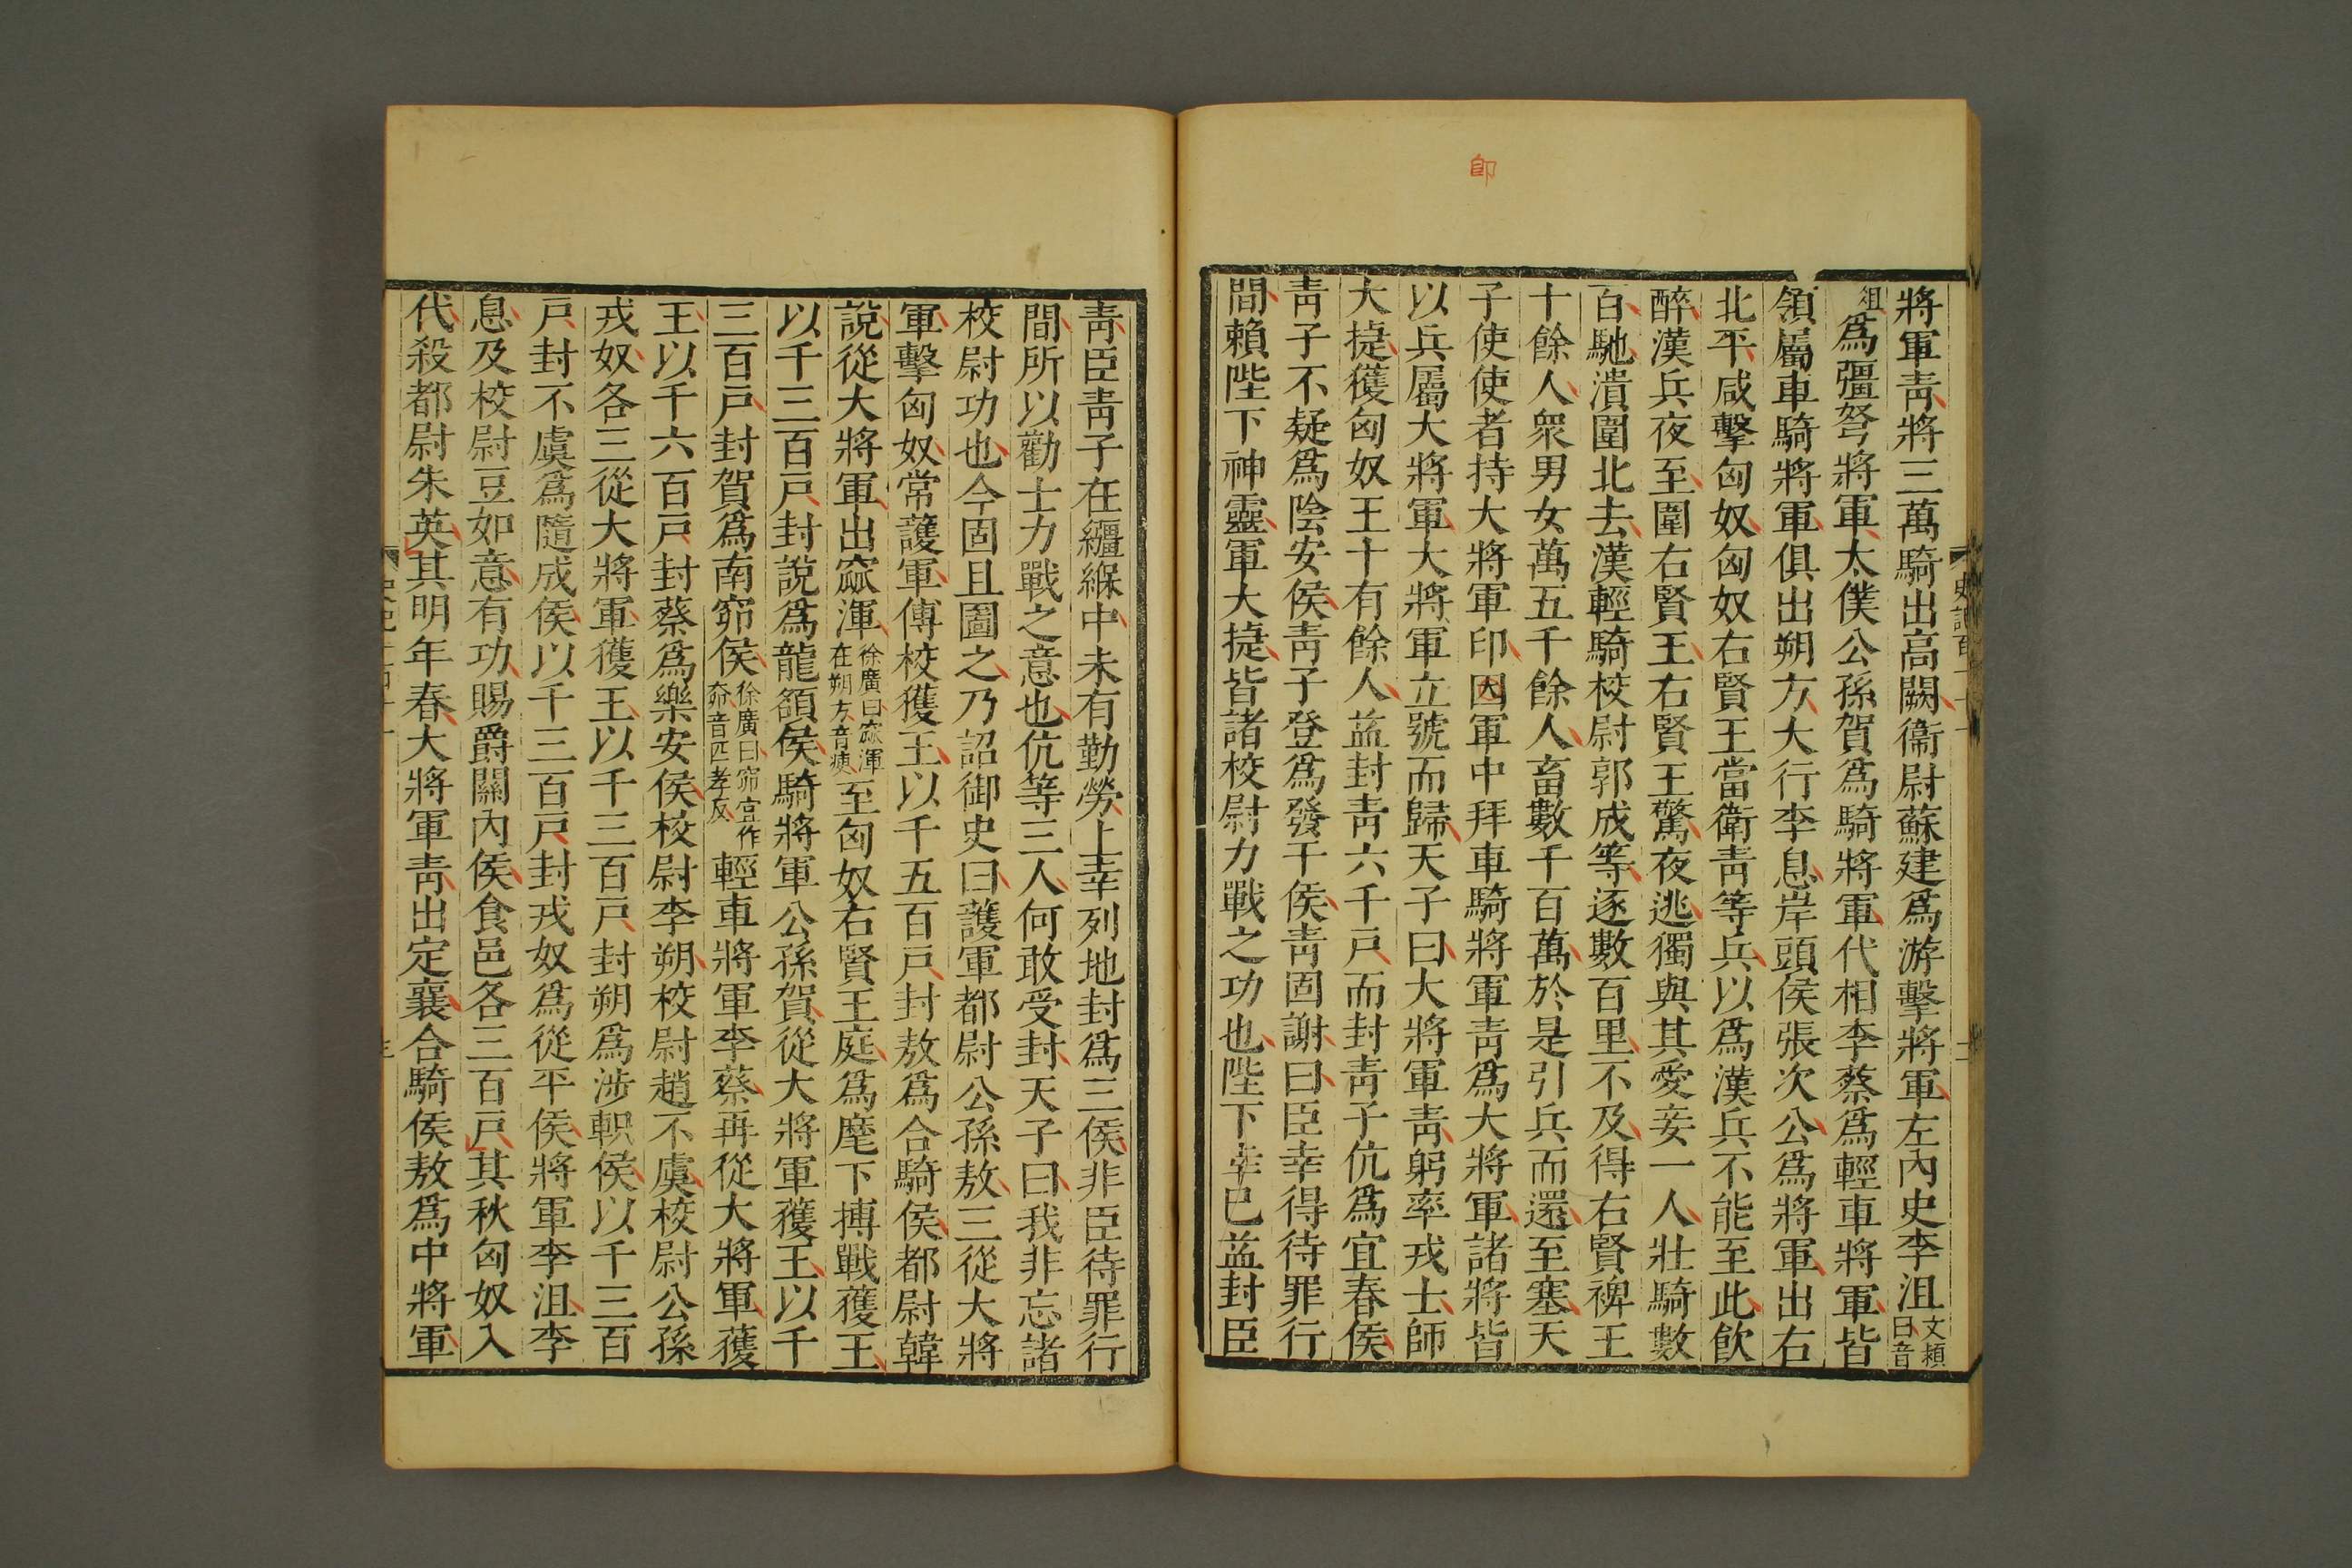 卽
將軍青將三萬騎出高闕衞尉蘇建爲游擊將軍左內史李沮文穎曰音
俎爲彊弩將軍太僕公孫賀爲騎將軍代相李蔡爲輕車將軍皆
領屬車騎將軍俱出朔方大行李息岸頭侯張次公爲將軍出右
北平咸擊匈奴匈奴右賢王當衞青等兵以爲漢兵不能至此飮
醉漢兵夜至圍右賢王右賢王驚夜逃獨與其愛妾一人壯騎數
百馳潰圍北去漢輕騎校尉郭成等逐數百里不及得右賢裨王
十餘人眾男女萬五千餘人畜數千百萬於是引兵而還至塞天
子使使者持大將軍印因軍中拜車騎將軍青爲大將軍諸將皆
以兵屬大將軍大將軍立號而歸天子曰大將軍青躬率戎士師
大捷獲匈奴王十有餘人益封青六千戸而封青子伉爲宜春侯
青子不疑爲陰安侯青子登爲發干侯青固謝曰臣幸得待罪行
間賴陛下神靈軍大捷皆諸校尉力戰之功也陛下幸已益封臣
青臣青子在繈緥中未有勤勞上幸列地封爲三侯非臣待罪行
間所以勸士力戰之意也伉等三人何敢受封天子曰我非忘諸
校尉功也今固且圖之乃詔御史曰護軍都尉公孫敖三從大將
軍擊匈奴常護軍傅校獲王以千五百戸封敖爲合騎侯都尉韓
說從大將軍出窳渾徐廣曰窳渾在朔方音庾至匈奴右賢王庭爲麾下搏戰獲王
以千三百戸封說爲龍頟侯騎將軍公孫賀從大將軍獲王以千
三百戸封賀爲南窌侯徐廣曰窌宜作奅音匹孝反輕車將軍李蔡再從大將軍獲
王以千六百戸封蔡爲樂安侯校尉李朔校尉趙不虞校尉公孫
戎奴各三從大將軍獲王以千三百戸封朔爲涉軹侯以千三百
戸封不虞爲隨成侯以千三百戸封戎奴爲從平侯將軍李沮李
息及校尉豆如意有功賜爵關內侯食邑各三百戸其秋匈奴入
代殺都尉朱英其明年春大將軍青出定襄合騎侯敖爲中將軍